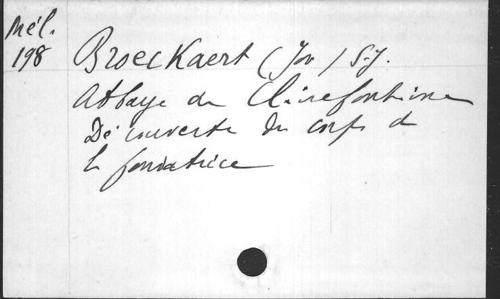 Mél.
198
Broeckaert (Jos) S.J.
Abbaye de Clairefontaine
Découverte du corps de
la fondatrice